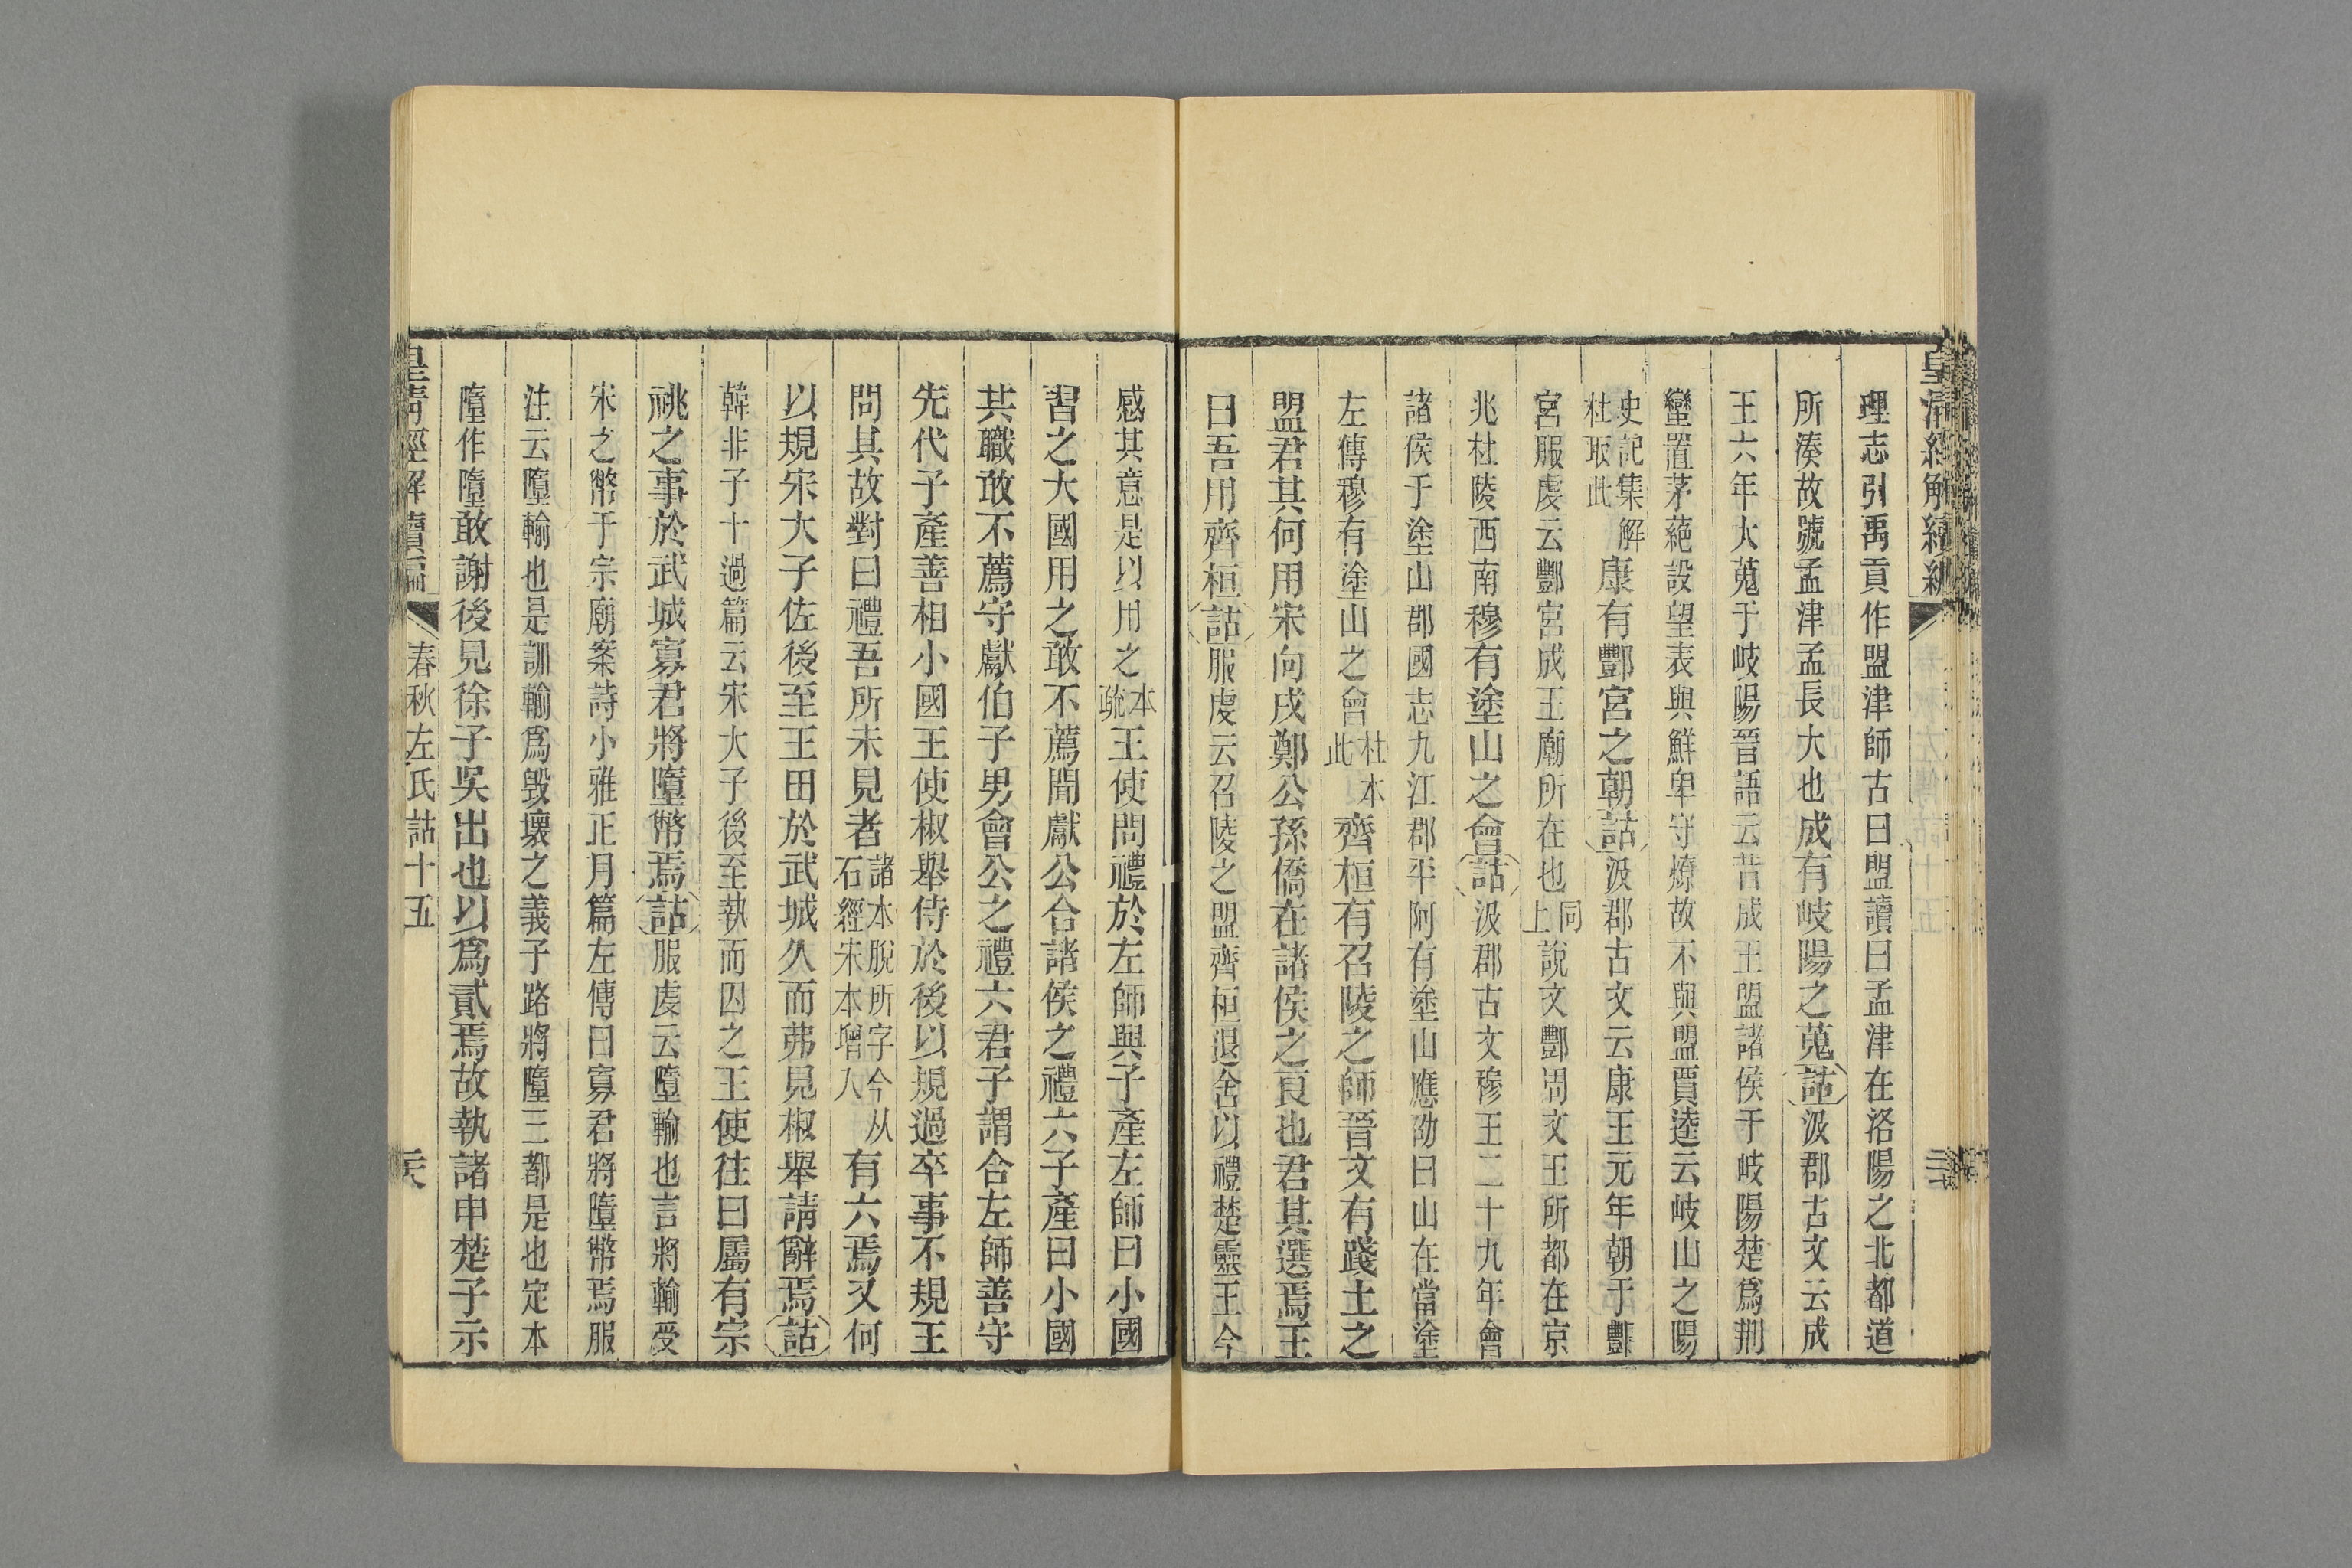 皇清經解續編
理志引禹貢作盟津師古曰盟讀曰孟津在洛陽之北都道
所湊故號孟津孟長大也成有岐陽之蒐詁汲郡古文云成
王六年大蒐于岐陽晉語云昔成王盟諸侯于岐陽楚爲荆
蠻置茅蕝設望表與鮮卑守燎故不與盟賈逵云岐山之陽
史記集解
杜取此
康有酆宮之朝詁汲郡古文云康王元年朝于酆
宮服虔云酆宮成王廟所在也同上說文酆周文王所都在京
兆杜陵西南穆有塗山之會詁汲郡古文穆王二十九年會
諸侯于塗山郡國志九江郡平阿有塗山應劭曰山在當塗
左傳穆有塗山之會杜本此齊桓有召陵之師晉文有踐土之
盟君其何用宋向戌鄭公孫僑在諸侯之良也君其選焉王
曰吾用齊桓詁服虔云召陵之盟齊桓退舍以禮楚靈王今
感其意是以用之本疏王使問禮於左師與子產左師曰小國
習之大國用之敢不薦聞獻公合諸侯之禮六子產曰小國
共職敢不薦守獻伯子男會公之禮六君子謂合左師善守
先代子產善相小國王使椒舉侍於後以規過卒事不規王
問其故對曰禮吾所未見者諸本脫所字今从石經宋本增入有六焉又何
以規宋大子佐後至王田於武城久而弗見椒舉請辭焉詁
韓非子十過篇云宋大子後至執而囚之王使往曰屬有宗
祧之事於武城寡君將墮幣焉詁服虔云墮輸也言將輸受
宋之幣于宗廟案詩小雅正月篇左傳曰寡君將墮幣焉服
注云墮輸也是訓輸爲毀壞之義子路將墮三都是也定本
隳作墮敢謝後見徐子吳出也以爲貳焉故執諸申楚子示
皇清經解續編
春秋左氏詁十五